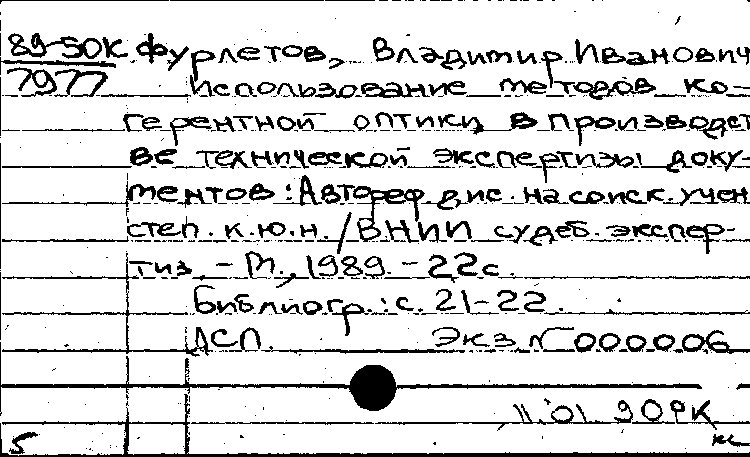 89-50К Фурлетов, Владимир Иванович
7977 Использование методов ко-
герентной оптики в производст
ве технической экспертизы доку-
ментов: Автореф. дис. на соиск. учен
степ. к.ю.н. / ВНИИ судеб. экспер-
тиз. - М., 1989. - 22с.
Библиогр.: с. 21-22.
ДСП. Экз. N 000006
11.01.90РК
5